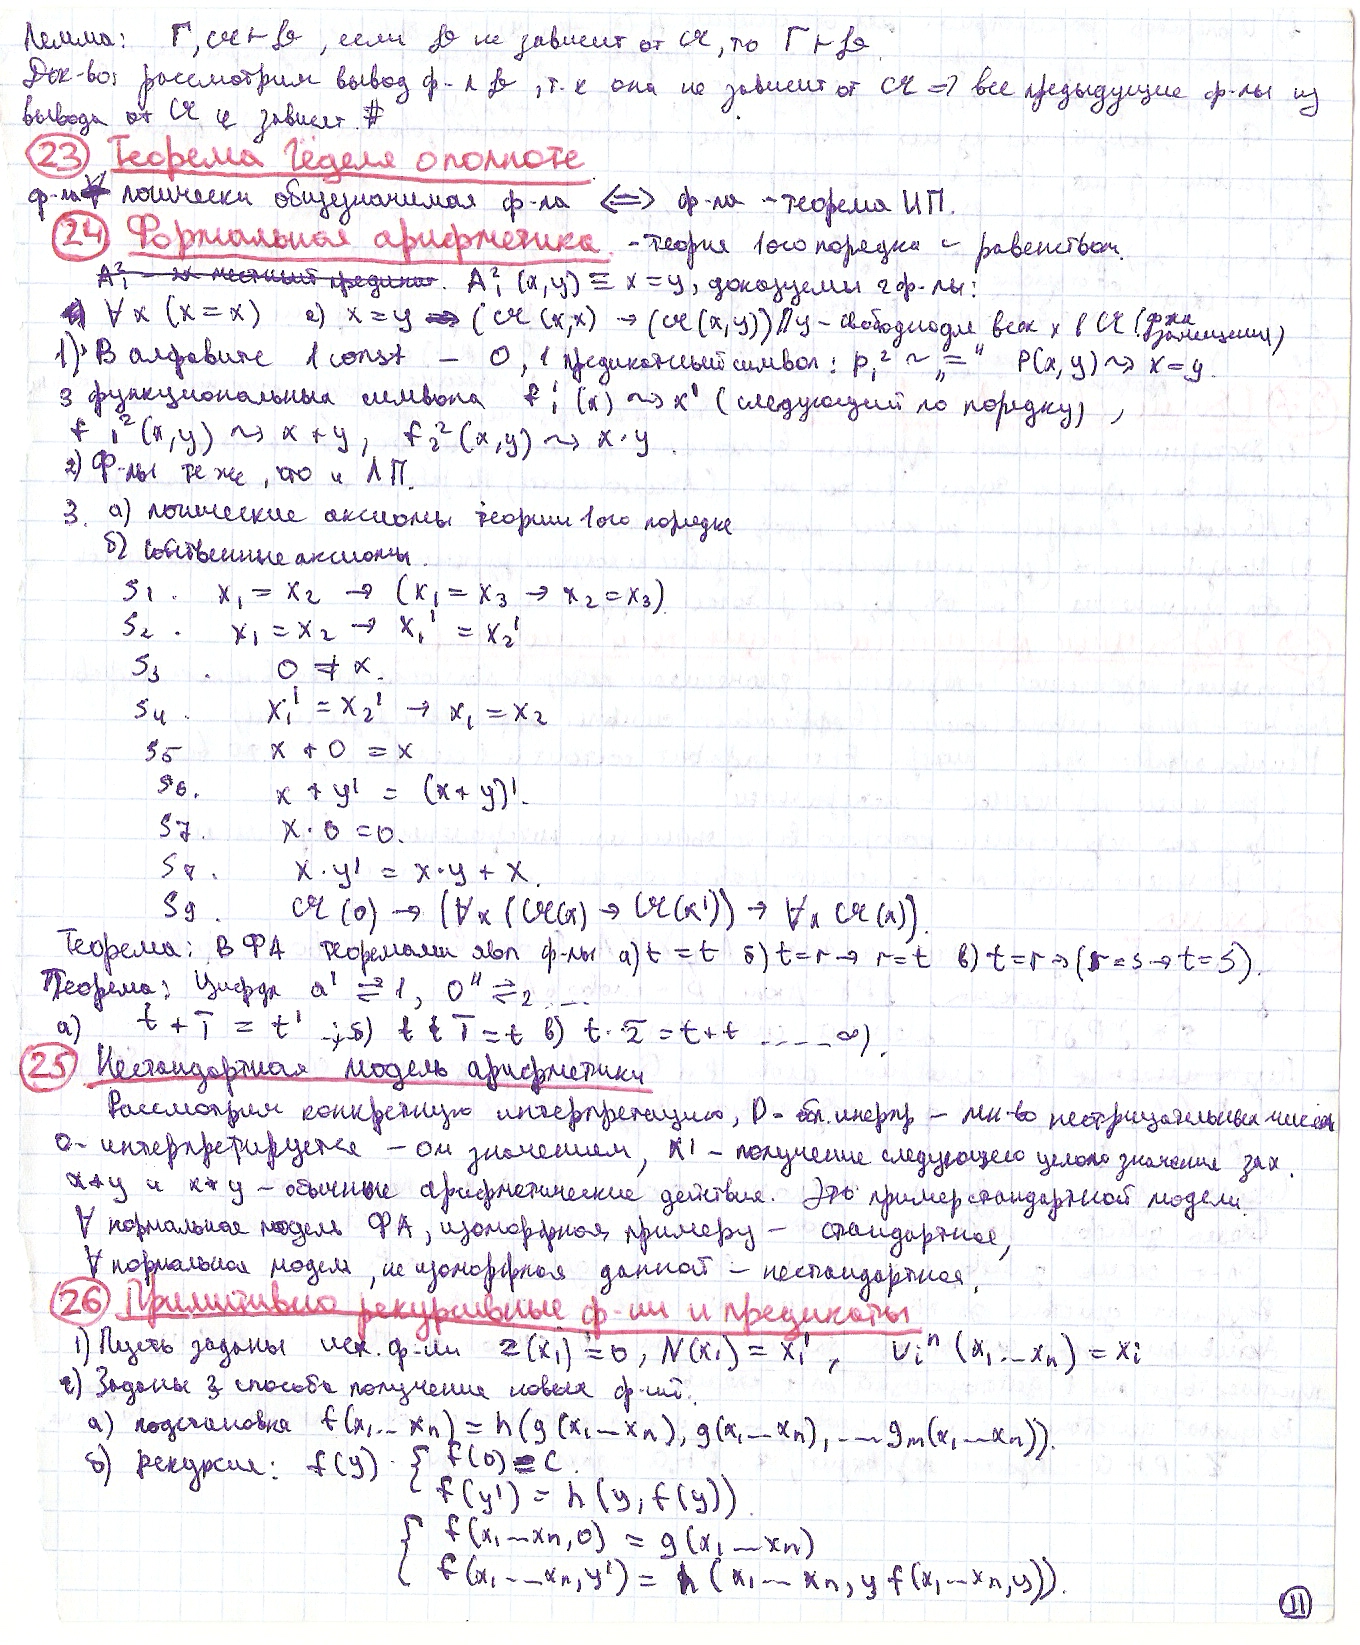 Лемма: Г, 𝔄 ⊢ ℬ, если ℬ не зависит от 𝔄, то Г ⊢ ℬ
Док-во: рассмотрим вывод ф-л ℬ, т.к она не зависит от 𝔄 => все предыдущие ф-лы из
вывода от 𝔄 не зависят. #
23 Теорема Геделя о полноте
ф-ла логически общезначимая ф-ла <=> ф-ла - теорема ИП.
24 Формальная арифметика - теория 1ого порядка с равенством.
A₁² - местный предикат. A₁²(x,y) ≡ x=y, доказуемы 2 ф-лы:
1) ∀x (x=x) 2) x=y → (𝔄(x,x) → (𝔄(x,y)) Пу - свободно для всех x в 𝔄 (ф-ла замещения)
1) В алфавите 1 const - 0, 1 предикатный символ: P₁² ~ „=" P(x,y) ~> x=y.
3 функциональных символа f₁¹(x) ~> x' (следующий по порядку),
f₁²(x,y) ~> x+y, f₂²(x,y) ~> x·y.
2) Ф-лы те же, что и ЛП.
3. а) логические аксиомы теории 1ого порядка
б) собственные аксиомы.
S1. x₁ = x₂ → (x₁ = x₃ → x₂ = x₃)
S2. x₁ = x₂ → x₁' = x₂'
S3. 0 ≠ x.
S4. x₁' = x₂' → x₁ = x₂
S5 x + 0 = x
S6. x + y' = (x+y)'.
S7. x·0 = 0.
S8. x·y' = x·y + x.
S9. 𝔄(0) → (∀x (𝔄(x) → 𝔄(x')) → ∀x 𝔄(x)).
Теорема: В ФА теоремами явл ф-лы а) t=t б) t=r → r=t в) t=r → (r=s → t=s).
Теорема: Цифра a' ⇄ 1, 0'' ⇄ 2 ...
а) t + 1̄ = t' ; б) t · 1̄ = t в) t·2̄ = t+t ..... ∞).
25 Нестандартная модель арифметики
Рассмотрим конкретную интерпретацию, D - обл. интерпр - мн-во неотрицательных чисел
0 - интерпретируется - ом значением, x' - получение следующего целого значения за x.
x+y и x*y - обычные арифметические действия. Это пример стандартной модели.
∀ нормальная модель ФА, изоморфная примеру - стандартное,
∀ нормальная модель, не изоморфная данной - нестандартная.
26 Примитивно рекурсивные ф-ии и предикаты
1) Пусть заданы исх. ф-ии Z(x₁) = 0, N(x₁) = x₁', Uᵢⁿ(x₁...xₙ) = xᵢ
2) Заданы 3 способа получения новых ф-ий.
а) подстановка f(x₁...xₙ) = h(g(x₁...xₙ), g(x₁...xₙ), ... gₘ(x₁...xₙ)).
б) рекурсия: f(y) { f(0) = C.
f(y') = h(y, f(y))
{ f(x₁...xₙ, 0) = g(x₁...xₙ)
f(x₁...xₙ, y') = h(x₁...xₙ, y f(x₁...xₙ, y)).
11